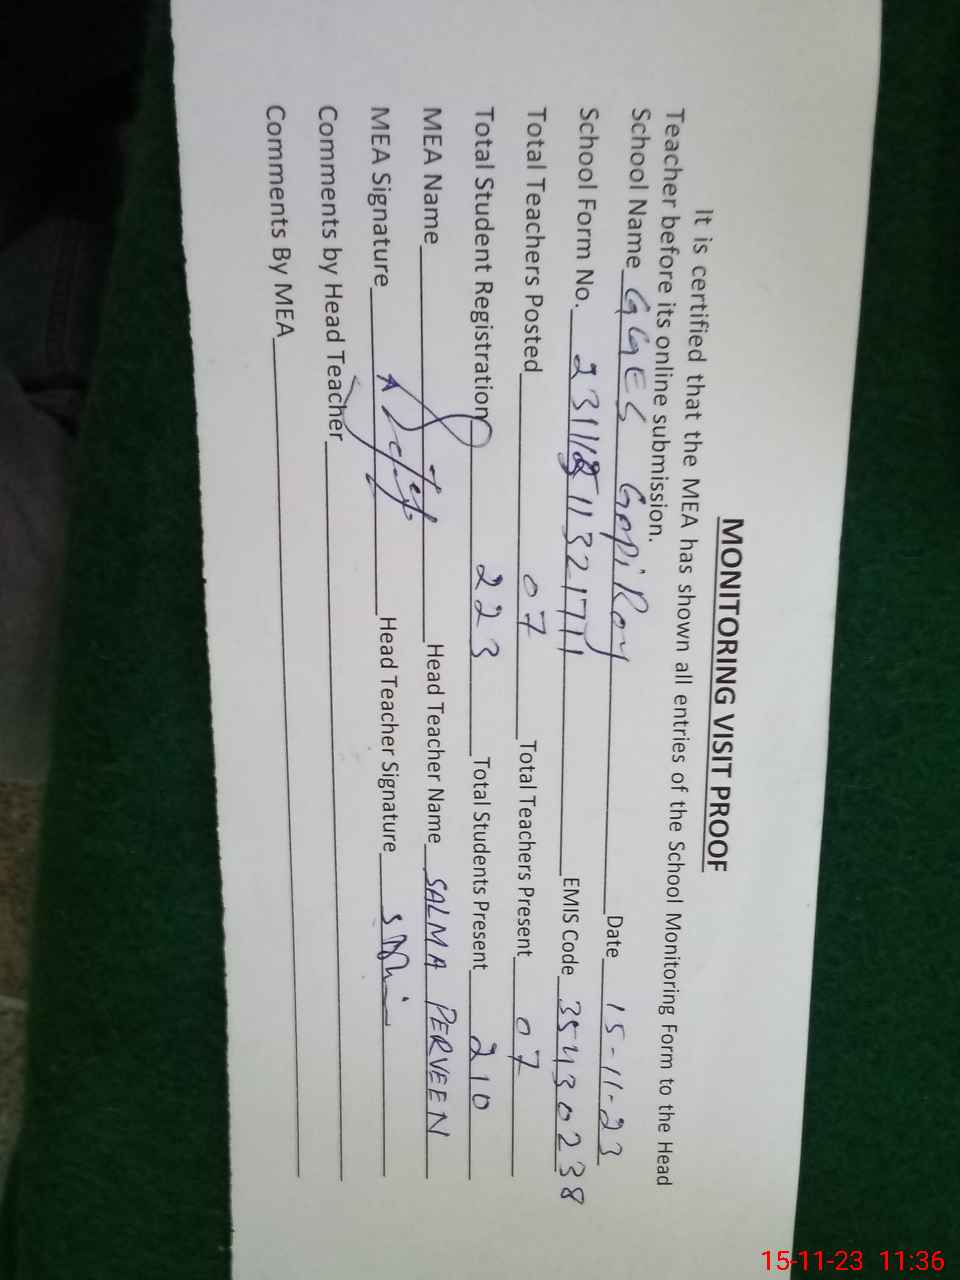 MONITORING VISIT PROOF
It is certified that the MEA has shown all entries of the School Monitoring Form to the Head
Teacher before its online submission.
School Name GGES Gopi Ray Date 15-11-23
School Form No. EMIS Code 35430238
Total Teachers Posted 07 Total Teachers Present 07
Total Student Registration 223 Total Students Present 210
MEA Name Head Teacher Name SALMA PERVEEN
MEA Signature Head Teacher Signature
Comments by Head Teacher
Comments By MEA
15-11-23 11:36